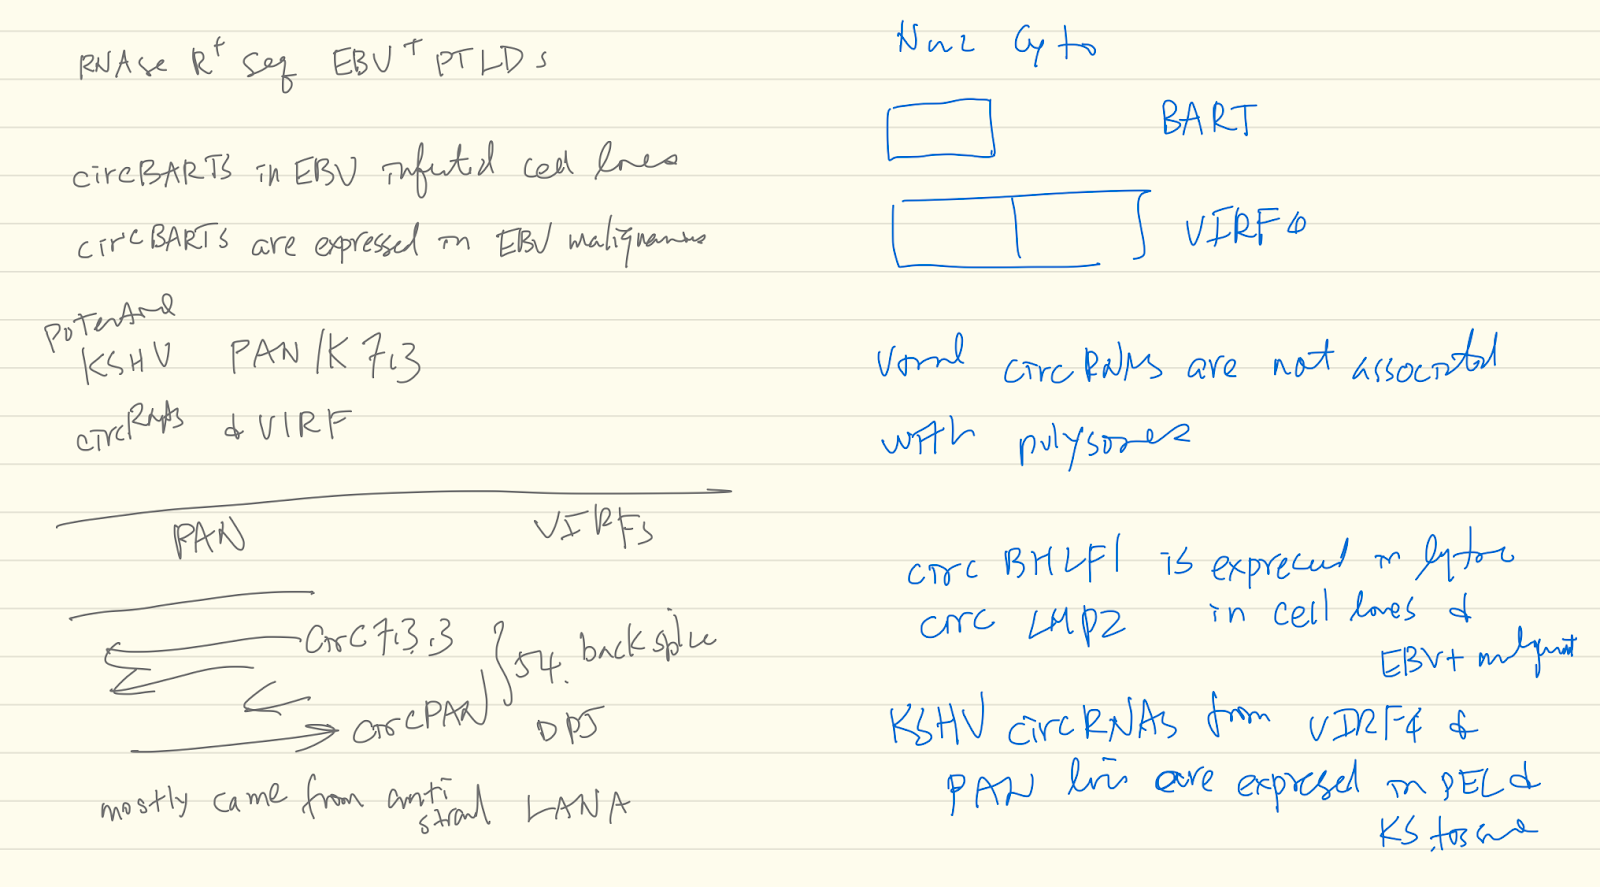 RNAse R+ seq EBV+ PTLDs
circBARTS in EBV infected cell lines
circBARTs are expressed in EBV malignancies
Potential
KSHV PAN/K7.3
circRNAs & VIRF
PAN VIRFs
circ7.3.3
54. backsplice
circPAN
mostly came from anti
strand LANA
Nuc Cyto
BART
VIRF4
Viral circRNAs are not associated
with polysomes
circ BHLF1 is expressed in lytic
circ LMP2 in cell lines &
EBV+ malignant
KSHV circRNAs from VIRF4 &
PAN loci are expressed in PEL &
KS tissue